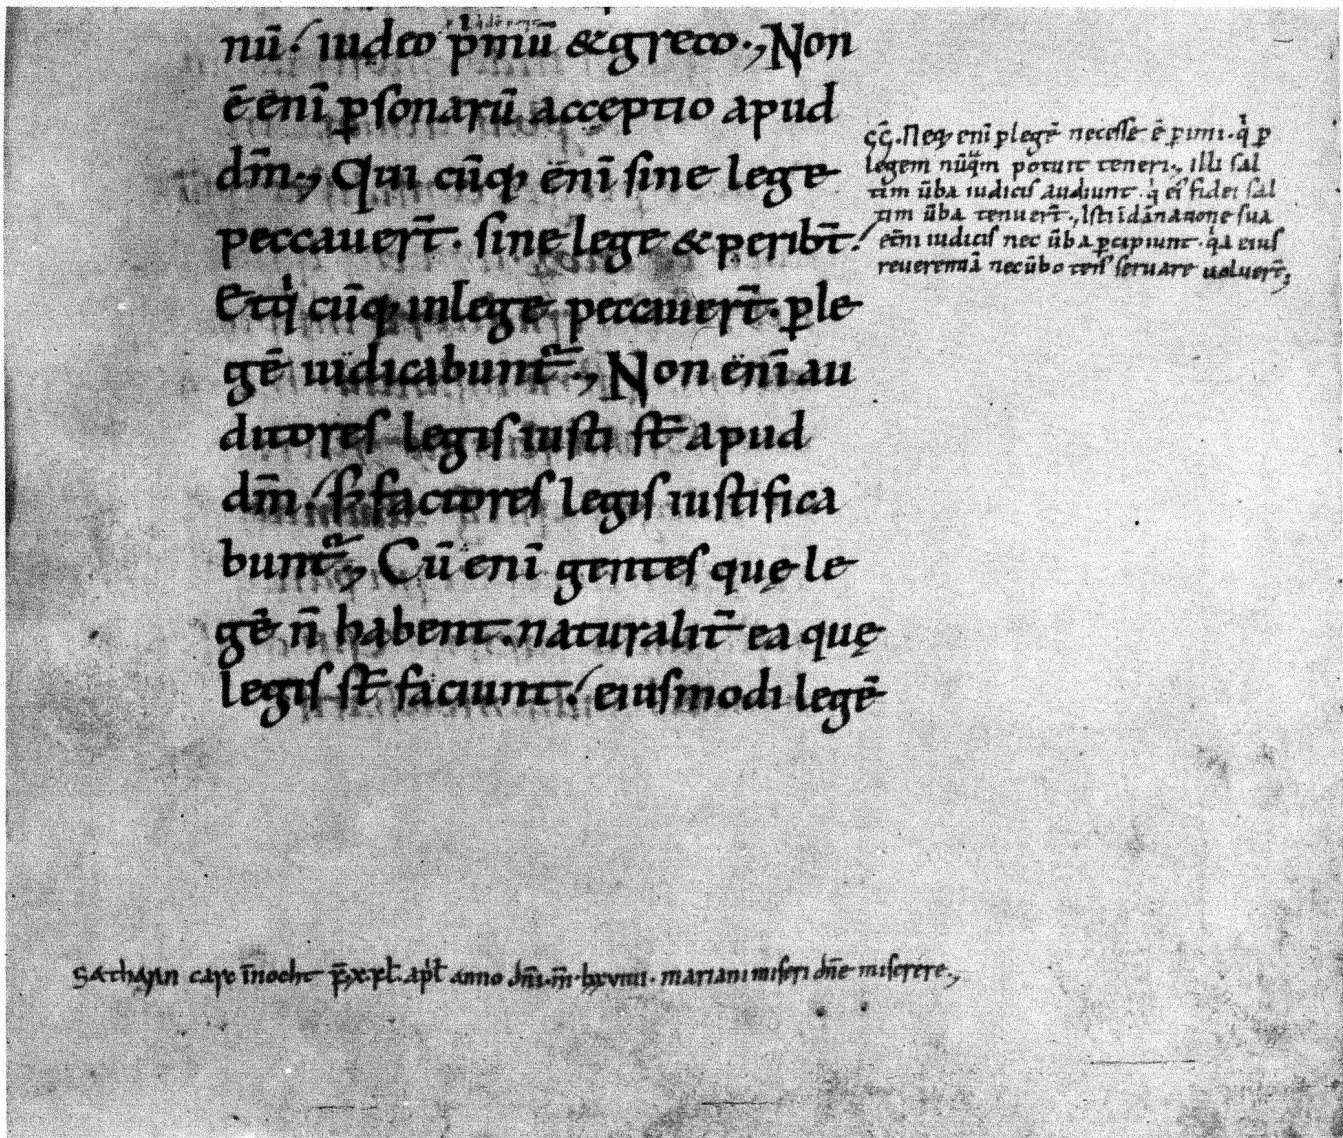 nū./ iudeo p̄mū &greco., Non
ē enī ꝑsonarū acceptio apud
dm̄., Qui cūqꝫ enī sine lege
peccauer̄t. sine lege & peribt̄./
Etqͥ cūqꝫ inlege peccauer̄t. ꝑle
gē iudicabunt᷑., Non enī au
ditores legis iusti st̄ apud
dm̄./ sꝫ factores legis iustifica
bunt᷑., Cū enī gentes quę le
gē n̄ habent. naturalit̄ ea quę
legis st̄ faciunt./ eiusmodi legē
Neqꝫ enī ꝑlegē necesse ē ꝑimi. qͥ ꝑ
legem nūqᵃm potuit teneri., illi sal
tim ūba iudicis audiunt. qͥ eiꝰ fidei sal
tim ūba tenuer̄t., Isti ī dānatione sua
et̄ni iudicis nec ūba ꝑcipiunt. qᵃ eius
reuerentiā necūbo tenꝰ seruare uoluer̄t,
Sathairn caře īnocht p̄.x.kł. apł anno dn̄i.m̄.lxxviiii. mariani miseri dn̄e miserere.,